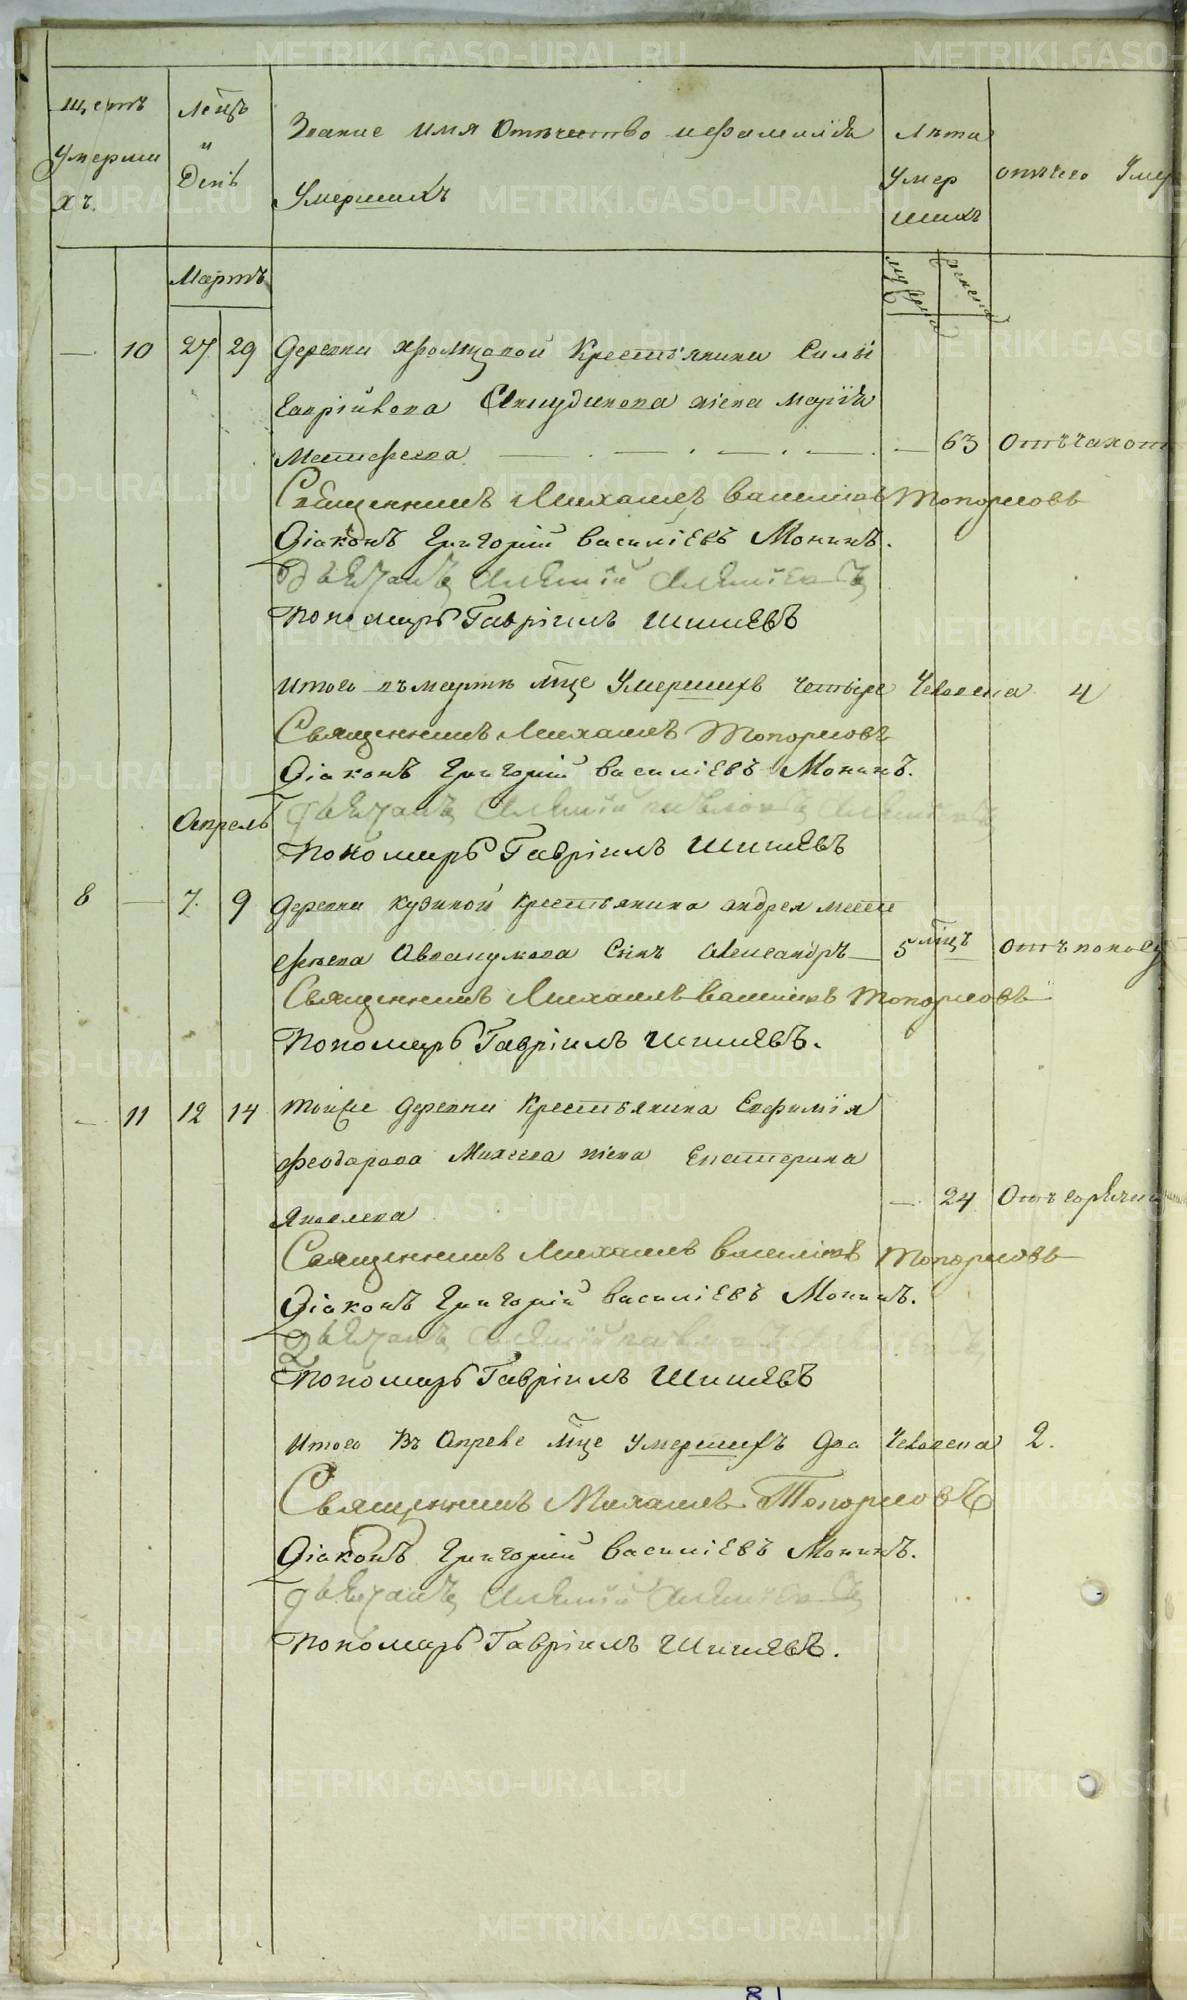 щетъ
умерши
хъ
Мецъ
и
День
Звание имя Отчество и фамилія
Умершихъ
Лѣта
умер
шихъ
отъчего Умер
Мартъ
муж
женск
— 10 27 29 Деревни Хромцовой Крестьянина Силы
Гаврійлова Анкудинова жена Марія
Матфеева — 63 Отъ чахот
Священникъ Михаилъ Васильевъ Топорковъ
Діаконъ Григорій Василіевъ Мокинъ.
Дьячекъ Алексій
Пономарь Гавріилъ Шишевъ
Итого въ мартѣ мце Умершихъ четыре человека 4
Священникъ Михаилъ Топорковъ
Діаконъ Григорій Василіевъ Мокинъ.
Апрель
Дьячекъ Алексій
Пономарь Гавріилъ Шишевъ
8 — 7 9 Деревни Кузиной Крестьянина Андрея Мат
фѣева Авкамумова Сынъ Александръ — 5 мцъ Отъ поносу
Священникъ Михаилъ Васильевъ Топорковъ
Пономарь Гавріилъ Шишевъ.
— 11 12 14 Тойже Деревни Крестьянина Евфимія
Феодорова Михеева жена Екатерина
Яковлева — 24 Отъ горячки
Священникъ Михаилъ Васильевъ Топорковъ
Діаконъ Григорій Василіевъ Мокинъ.
Дьячекъ Алексій
Пономарь Гавріилъ Шишевъ
Итого Въ Апреле мце умершихъ два человека 2.
Священникъ Михаилъ Топорковъ
Діаконъ Григорій Василіевъ Мокинъ.
Дьячекъ Алексій
Пономарь Гавріилъ Шишевъ.
METRIKI.GASO-URAL.RU